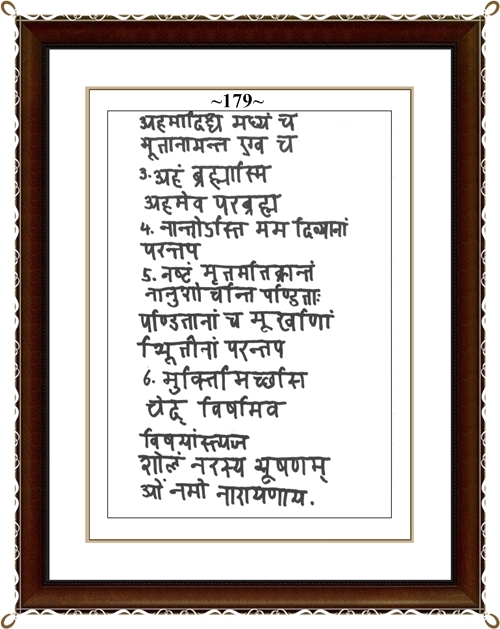 ~179~
अहमादिश्च मध्यं च
भूतानामन्त एव च
3. अहं ब्रह्मास्मि
अहमेव परब्रह्म
4. नान्तोऽस्ति मम दिव्यानां
परन्तप
5. नष्टं मृतमतिक्रान्तं
नानुशोचन्ति पण्डिताः
पण्डितानां च मूर्खाणां
परन्तप
6. मुक्तिमिच्छसि
चेद् विषमिव
विषयांस्त्यज
शीलं नरस्य भूषणम्
ओं नमो नारायणाय.